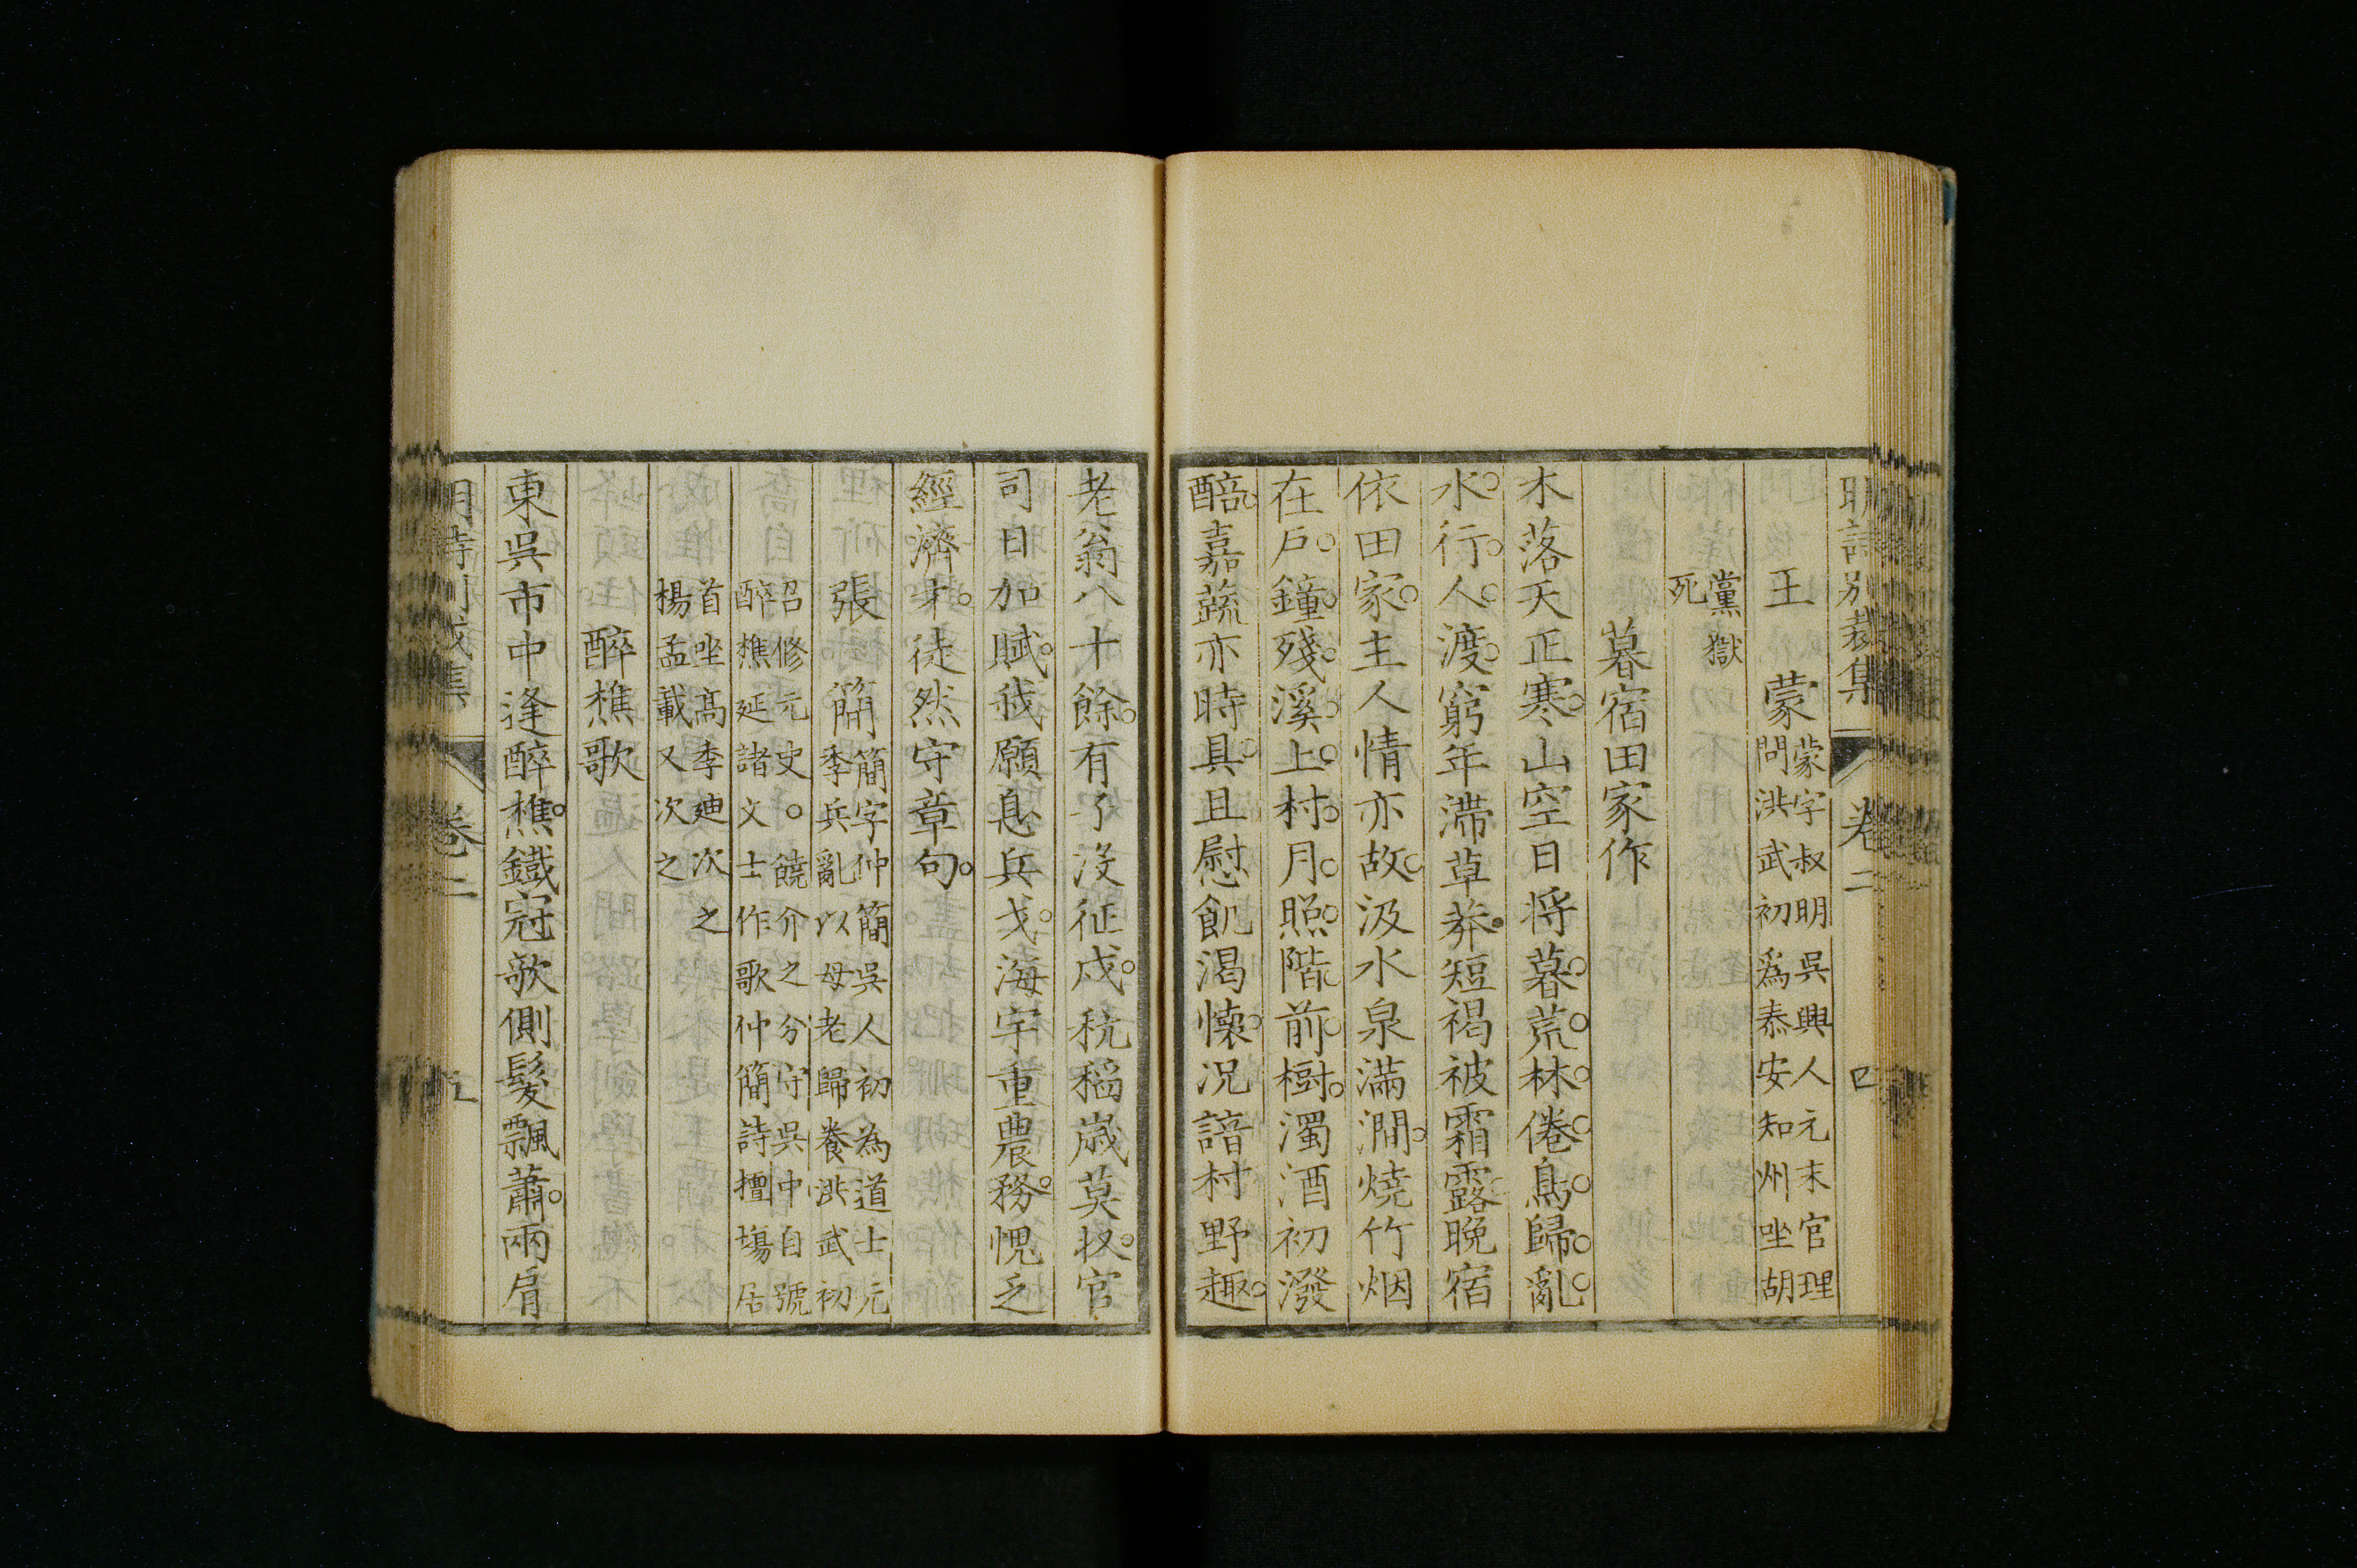 明詩別裁集 卷二 四
王 蒙 蒙字叔明吳興人元末官理
問洪武初爲泰安知州坐胡
黨獄
死
暮宿田家作
木落天正寒。山空日將暮。荒林倦鳥歸。亂
水。行。人。渡。窮年滯草莽。短褐被霜露。晚宿
依田家。主人情亦故。汲水泉滿澗。燒竹烟
在戶。鐘殘溪上村。月照階前樹。濁酒初潑
醅。嘉蔬亦時具。且慰飢渴懷。況諳村野趣。
老翁八十餘。有子沒征戍。秔稻歲莫收。官
司日加賦。我願息兵戈。海宇重農務。愧乏
經濟才。徒然守章句。
張 簡 簡字仲簡吳人初為道士元
季兵亂以母老歸養洪武初
召修元史。饒介之分守吳中自號
醉樵延諸文士作歌仲簡詩擅塲居
首坐高季廸次之
楊孟載又次之
醉樵歌
東吳市中逢醉樵。鐵冠欹側髮飄蕭。兩肩
明詩別裁集 卷二 五